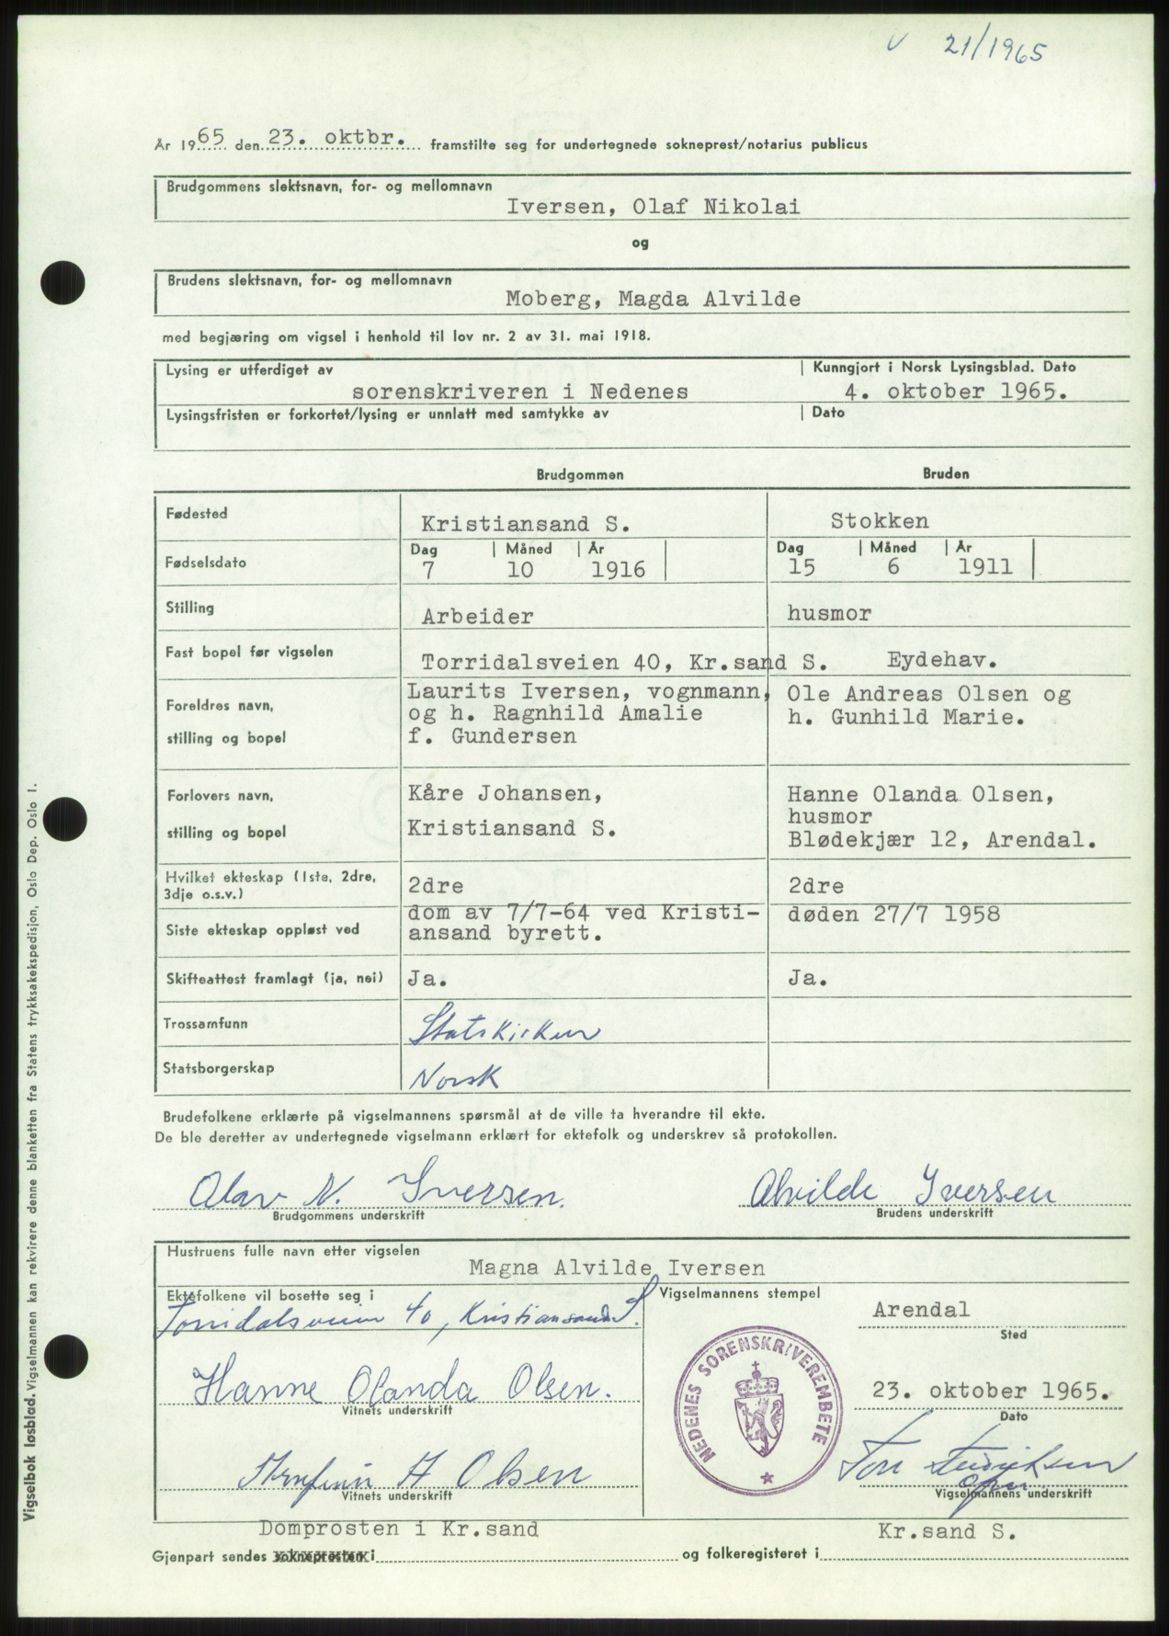 v 21/1965
År 1965 den 23. oktbr. framstilte seg for undertegnede sokneprest/notarius publicus
Brudgommens slektsnavn, for- og mellomnavn
Iversen, Olaf Nikolai
og
Brudens slektsnavn, for- og mellomnavn
Moberg, Magda Alvilde
med begjæring om vigsel i henhold til lov nr. 2 av 31. mai 1918.
Lysing er utferdiget av Kunngjort i Norsk Lysingsblad. Dato
sorenskriveren i Nedenes 4. oktober 1965.
Lysingsfristen er forkortet/lysing er unnlatt med samtykke av Dato
Brudgommen Bruden
Fødested Kristiansand S. Stokken
Dag Måned År Dag Måned År
Fødselsdato 7 10 1916 15 6 1911
Stilling Arbeider husmor
Fast bopel før vigselen Torridalsveien 40, Kr.sand S. Eydehav.
Foreldres navn, stilling og bopel
Laurits Iversen, vognmann,
og h. Ragnhild Amalie
f. Gundersen
Ole Andreas Olsen og
h. Gunhild Marie.
Forlovers navn, stilling og bopel
Kåre Johansen,
Kristiansand S.
Hanne Olanda Olsen,
husmor
Blødekjær 12, Arendal.
Hvilket ekteskap (1ste, 2dre,
3dje o.s.v.) 2dre 2dre
Siste ekteskap oppløst ved
dom av 7/7-64 ved Kristi-
ansand byrett.
døden 27/7 1958
Skifteattest framlagt (ja, nei) Ja. Ja.
Trossamfunn Statskirken
Statsborgerskap Norsk
Brudefolkene erklærte på vigselmannens spørsmål at de ville ta hverandre til ekte.
De ble deretter av undertegnede vigselmann erklært for ektefolk og underskrev så protokollen.
Olav N. Iversen. Alvilde Iversen
Brudgommens underskrift Brudens underskrift
Hustruens fulle navn etter vigselen
Magna Alvilde Iversen
Ektefolkene vil bosette seg i Vigselmannens stempel
Torridalsveien 40, Kristiansand S.
Arendal
Sted
Hanne Olanda Olsen.
Vitnets underskrift
NEDENES SORENSKRIVEREMBETE
23. oktober 1965.
Dato
H Olsen
Vitnets underskrift
Tor
Vigselmannens underskrift
Domprosten i Kr.sand Kr.sand S.
Gjenpart sendes soknepresten i og folkeregisteret i
Vigselbok løsblad. Vigselmannen kan rekvirere denne blanketten fra Statens trykksakekspedisjon, Oslo Dep. Oslo 1.